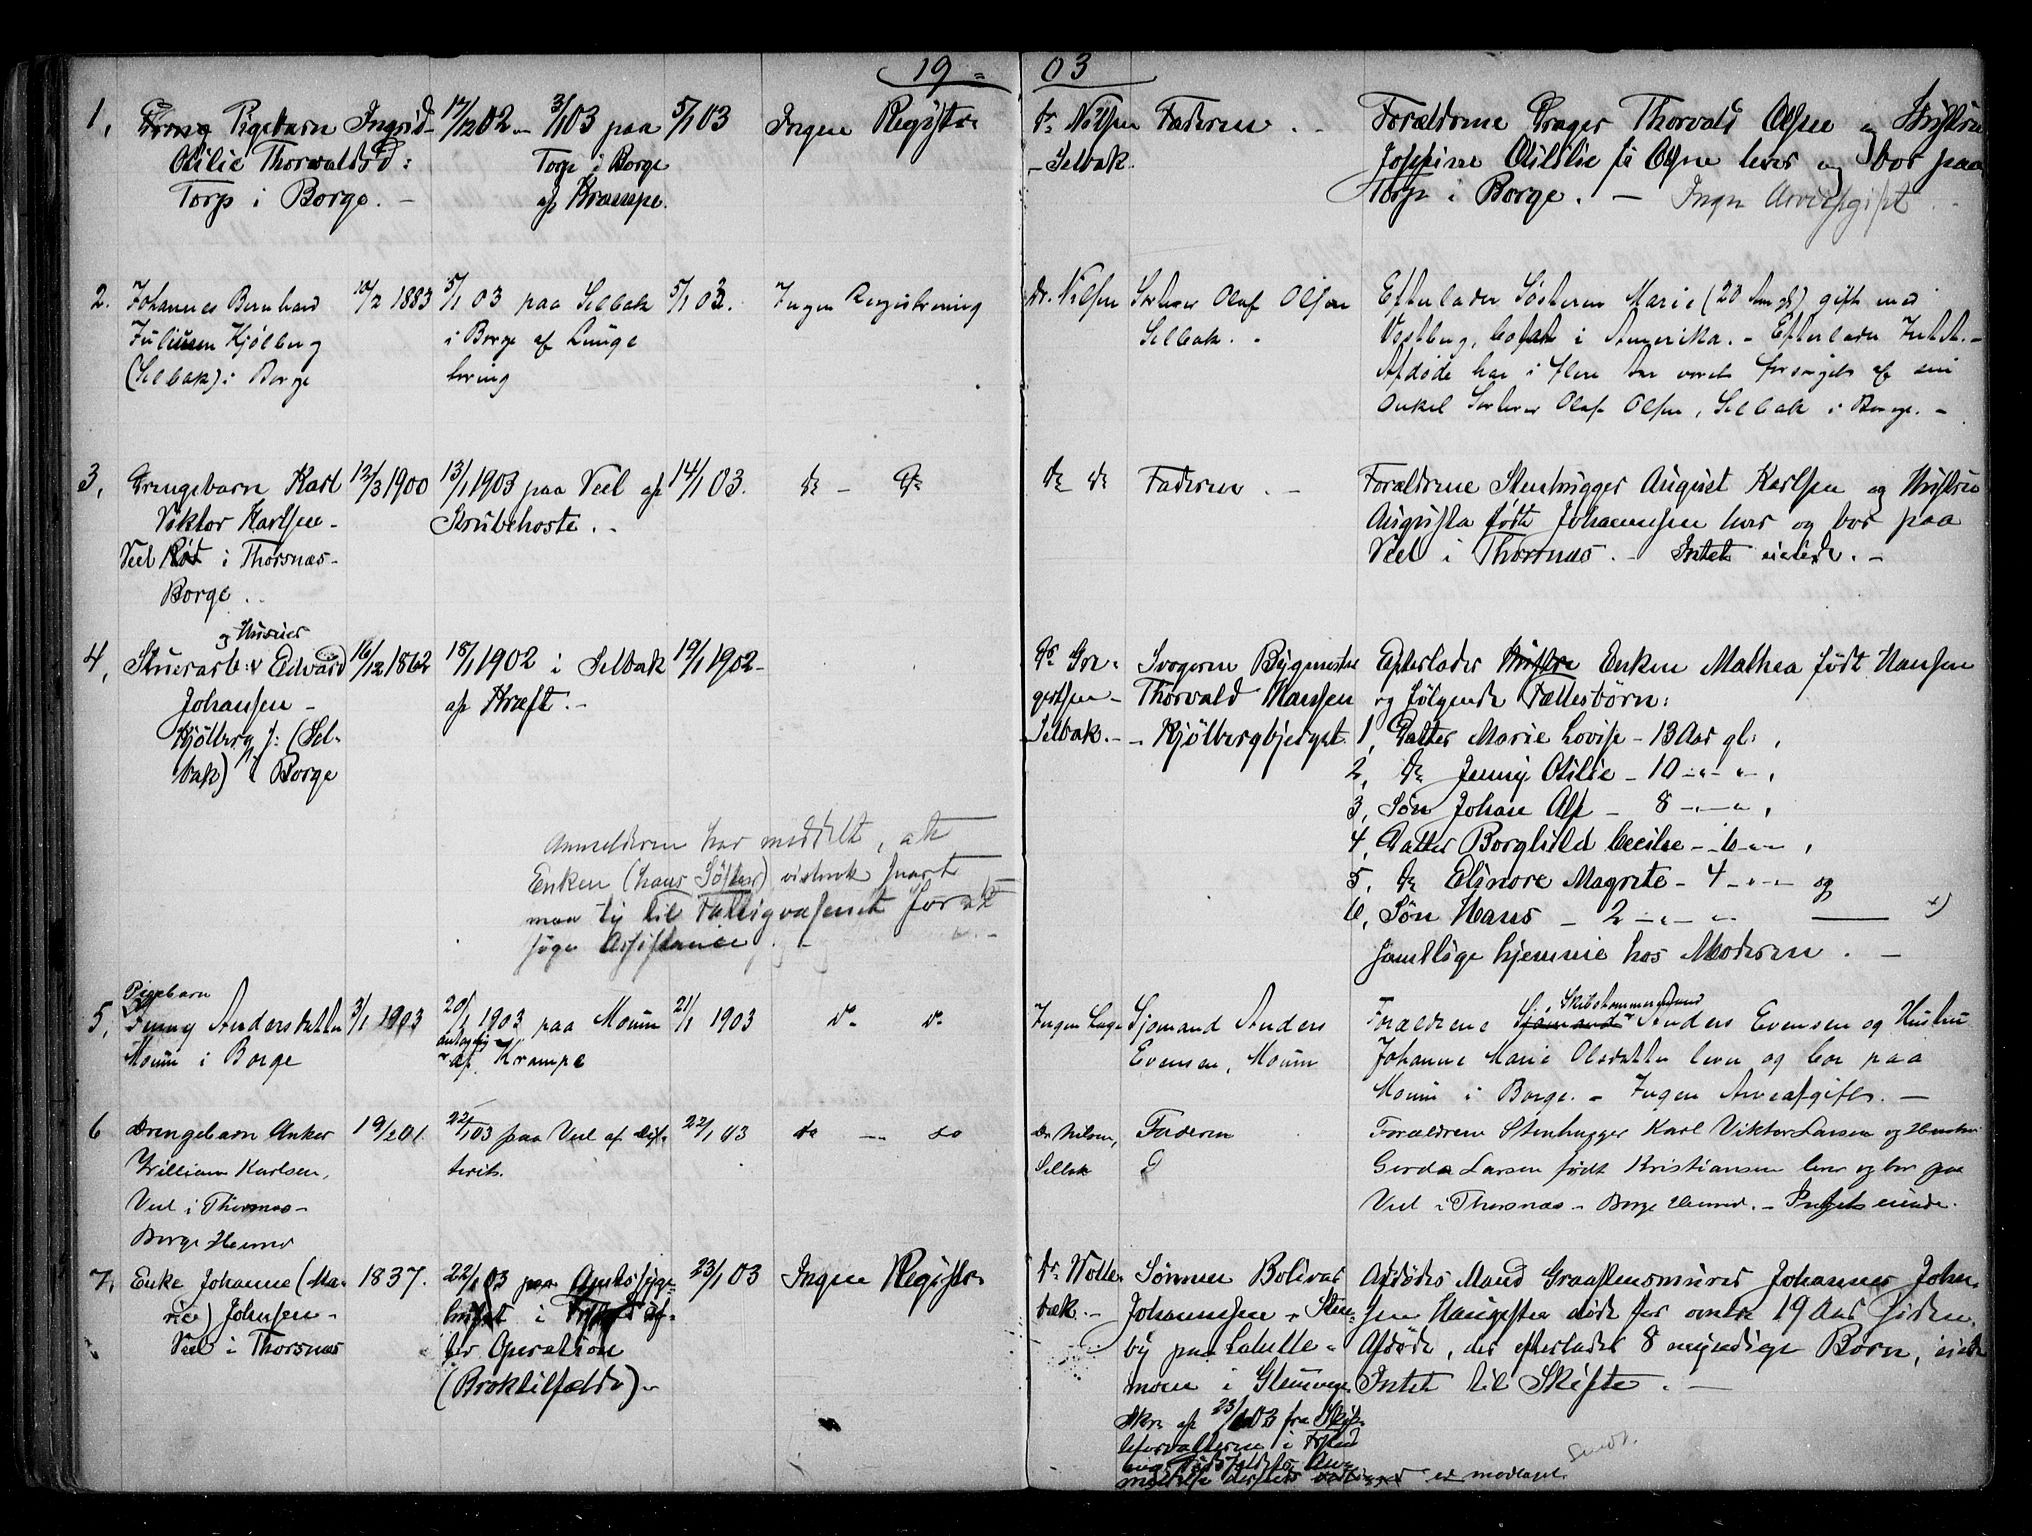 19 - 03
1, Pigebarn Ingrid
Otilie Thorvaldsd:
Torp i Borge. -
17/12 02 - 3/1 03 paa
Torp i Borge
af Krampe.
5/1 03
Ingen Registr.
Dr. Nilsen
- Selbak.
Faderen. -
Forældrene Thorvald Olsen og Hustru
Josefine Otilie f. Olsen lever og bor paa
Torp i Borge. - Ingen Arveafgift
2. Johannes Bernhard
Juliussen Kjølberg
(Selbak) i Borge
10/2 1883
5/1 03 paa Selbak
i Borge af Lunge
tæring
5/1 03.
Ingen Registrering
Dr. Nilsen
Olaf Olsen
Selbak. -
Efterlader Søsteren Marie (20 Aar gl) gift med
Vestberg, bosat i Amerika. - Efterlader Intet. -
Afdøde har i flere Aar været forsørget af sin
Onkel Olaf Olsen, Selbak i Borge. -
3, Drengebarn Karl
Viktor Karlsen -
Veel i Thorsnæs -
Borge..
12/3 1900
13/1 1903 paa Veel af
Strubehoste. -
14/1 03.
do - do
do do
Faderen. -
Forældrene Stenhugger August Karlsen og Hustru
Augusta født Johannssen lever og bor paa
Veel i Thorsnæs. - Intet eiende. -
og Huseier
4, Stuerarb: Edvard
Johansen -
Kjølberg (Sel-
bak) i Borge
16/12 1862
18/1 1902 i Selbak
af Kræft. -
19/1 1902 -
Dr Gre-
gersen -
Selbak. -
Svogeren Bygmester
Thorvald Hansen
- Kjølbergbjerget.
Efterlader Enken Mathea født Hansen
og følgende Fællesbørn:
1, Datter Marie Lovise - 13 Aar gl: ,
2, do Jenny Otilie - 10 - " - " - ,
3, Søn Johan Alf - 8 - " - " ,
4, Datter Borghild Cecilie - 6 - " - ,
5, do Elinore Magrete - 4 - " - og
6, Søn Hans - 2 - " - " x)
samtlige hjemme hos Moderen. -
Anmelderen har meddelt, at
Enken (hans Søster) vistnok snart
maa ty til Fattigvæsenet for at
søge Assistance. -
Pigebarn
5, Jenny Andersdatter
Moum i Borge
3/1 1903
20/1 1903 paa Moum
antagelig
af Krampe
21/1 1903
do do
Ingen Læge
Sjømand Anders
Evensen, Moum
Skibstømmermand
Forældrene Sjømand Anders Evensen og Hustru
Johanne Marie Olsdatter lever og bor paa
Moum i Borge. - Ingen Arveafgift. -
6 Drengebarn Anker
William Karlsen,
Veel i Thorsnæs -
Borge Herred
19/2 01.
22/1 03 paa Veel af Dif-
terit.
22/1 03
do - do
Dr. Nilsen,
Selbak
Faderen
Forældrene Stenhugger Karl Viktor Larsen og Hustru
Gerda Larsen født Kristiansen lever og bor paa
Veel i Thorsnæs - Borge Herred. - Intet eiende.
7, Enke Johanne (Ma-
rie) Johnsen -
Veel i Thorsnæs
1837.
22/1 03 paa Amtssyge-
huset i ef-
ter Operation
(Broktilfælde). -
23/1 03
Ingen Registr.
Dr. Wolle-
bæk. -
Sønnen Bolivar
Johannssen - Sten-
by paa Labelle-
moen i Glemminge
Afdødes Mand Graastensmurer Johannes John-
sen døde for omtr. 19 Aar siden.
Afdøde, der efterlader 8 myndige Børn, eiede
Intet til Skifte. -
Skr. af 23/1 03 fra Skif-
teforvalteren i
er modtaget.